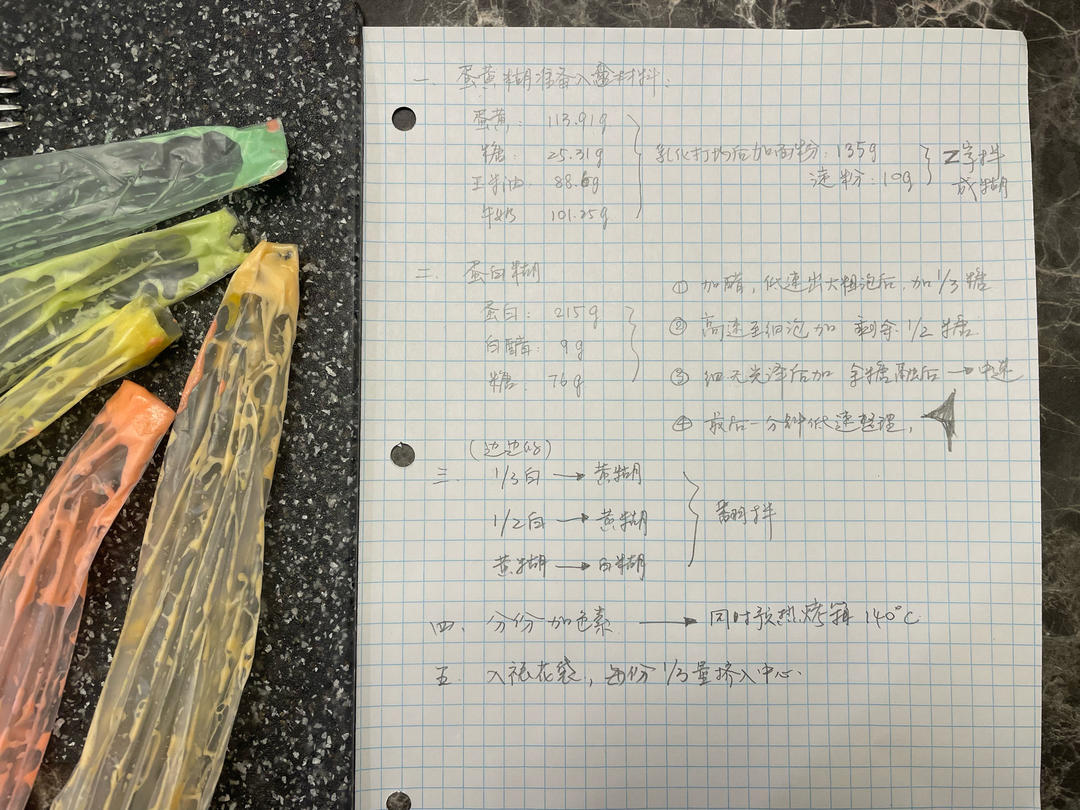 一. 蛋黄糊准备入盆材料:
蛋黄: 113.91g
糖: 25.31g
玉米油: 88.6g
牛奶: 101.25g
乳化打均后加面粉: 135g
淀粉: 10g
Z字拌
成糊
二. 蛋白糊
蛋白: 215g
白醋: 9g
糖: 76g
① 加醋, 低速出大粗泡后, 加1/3糖
② 高速至细泡加 剩余1/2糖
③ 细无光泽后加 余糖融后→中速
④ 最后一分钟低速整理,
三. (边边的)
1/3白→黄糊
1/2白→黄糊
黄糊→白糊
翻拌
四. 分份加色素 → 同时预热烤箱 140°C
五. 入裱花袋, 每份1/3量挤入中心.